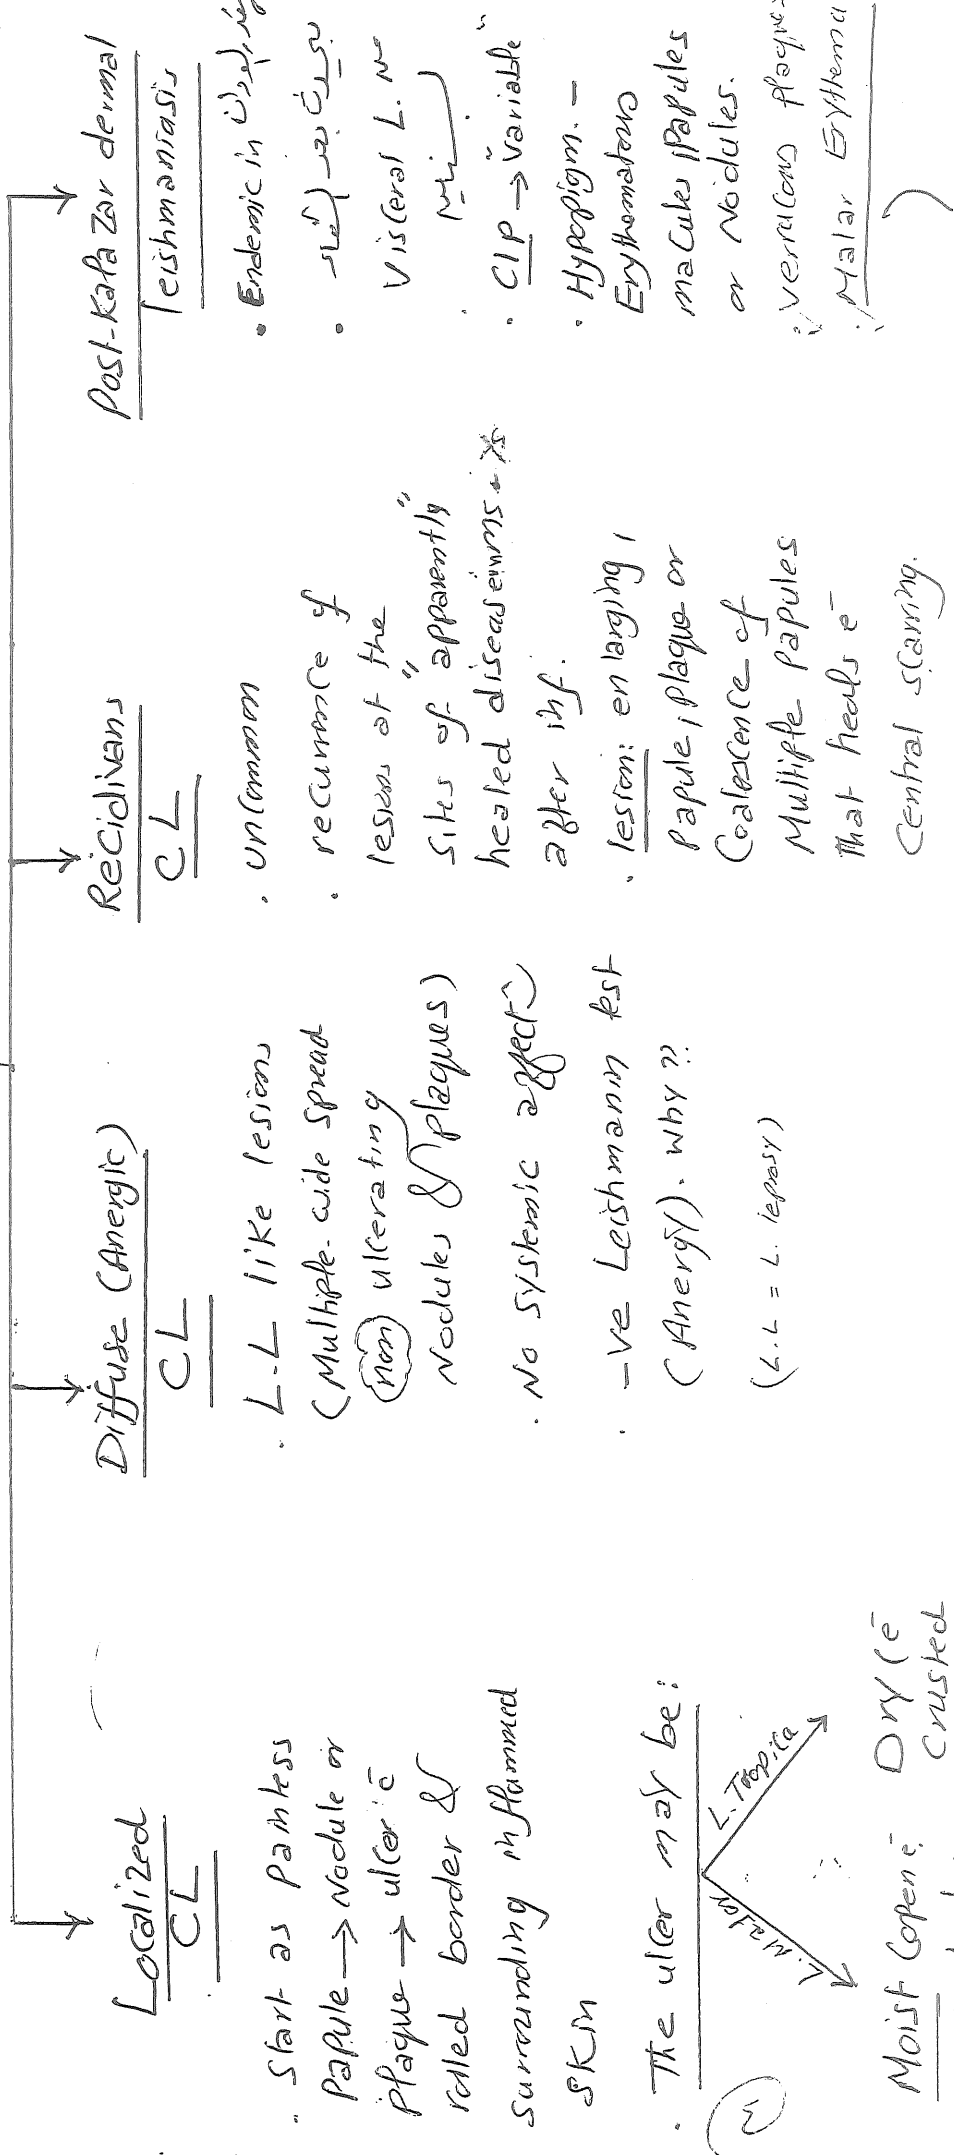 Localized
CL
. Start as painless
Papule → Nodule or
Plaque → ulcer c̄
rolled border &
surrounding inflammed
skin
. The ulcer may be:
L. Major
L. Tropica
Moist (open c̄
Dry (c̄
crusted
Diffuse (Anergic)
CL
. L.L like lesions
(Multiple - wide spread
non ulcerating
Nodules & plaques)
. No systemic affect
. -ve Leishmanin test
(Anergy). why??
(L.L = L. leprosy)
Recidivans
CL
. uncommon
. recurrence of
lesions at the
"sites of apparently"
healed disease
after inf.
. lesion: enlarging,
Papule, plaque or
Coalescence of
Multiple papules
that heals c̄
central scarring.
Post-Kala zar dermal
leishmaniasis
• Endemic in
•
Visceral L.
. C/P → "Variable"
. Hypopigm. -
Erythematous
macules, Papules
or Nodules.
Verrucous plaque
Malar Erythema